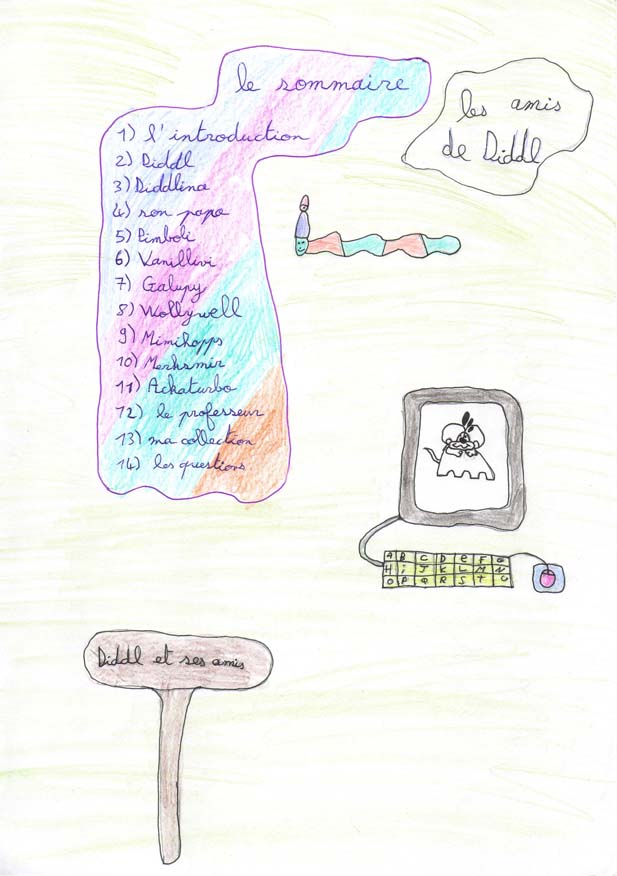 le sommaire
1) l'introduction
2) Diddl
3) Diddlina
4) son papa
5) Pimboli
6) Vanillivi
7) Galupy
8) Wollywell
9) Mimihopps
10) Merksmir
11) Ackaturbo
12) le professeur
13) ma collection
14) les questions
les amis
de Diddl
A B C D E F G
H i J K L M N
O P Q R S T U
Diddl et ses amis